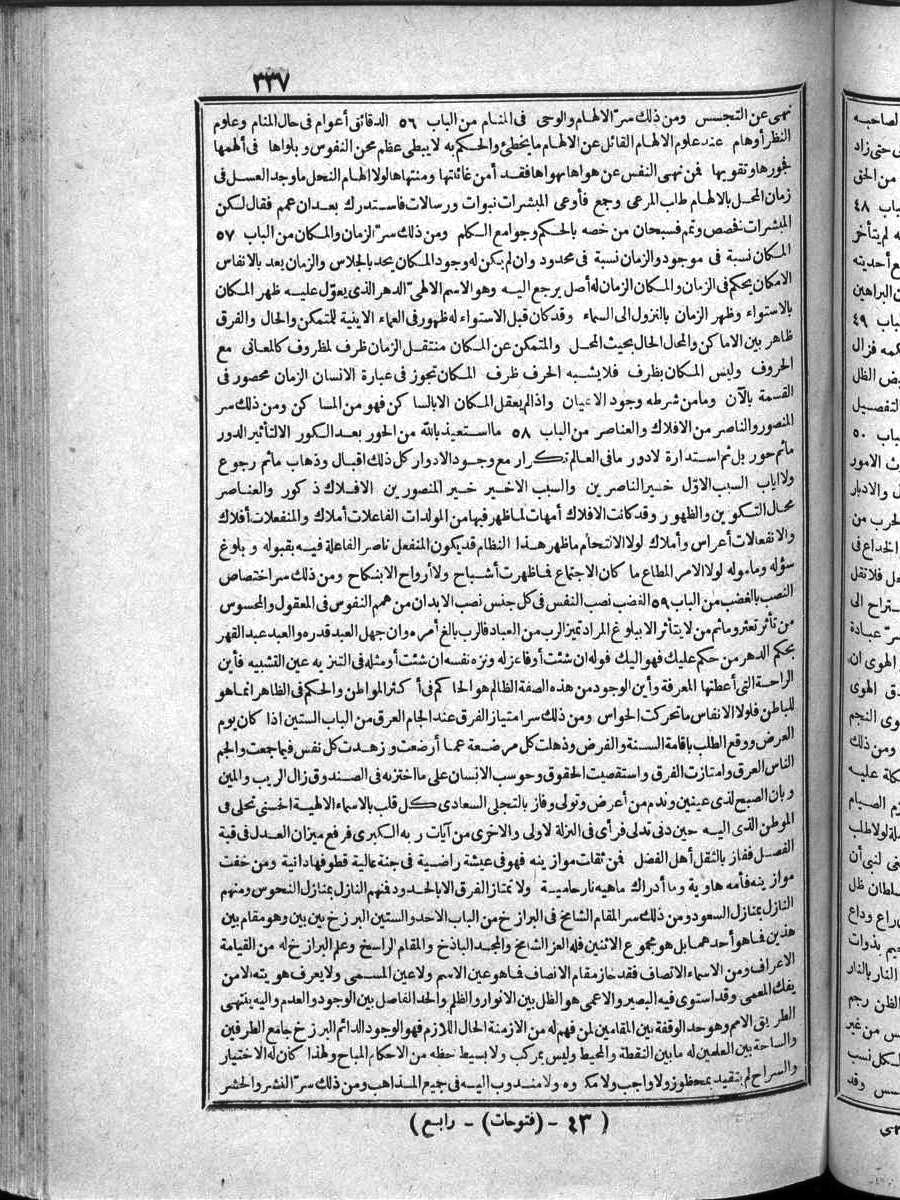 ٣٣٧
نهى عن التجسس ومن ذلك سر الالهام والوحى فى المنام من الباب ٥٦ الدقائق أعوام فى حال المنام وعلوم
النظر أوهام عند علوم الالهام القائل عن الالهام ما يخطئ والحكم به لا يبطى عظم محن النفوس وبلواها فى ألهمها
فجورها وتقويها فمن نهى النفس عن هواها بهواها فقد أمن غائلتها ومنتهاها لولا الهام النحل ما وجد العسل فى
زمان المحل بالالهام طلب المرعى وجمع فأوعى المبشرات نبوات ورسالات فاستدرك بعد ان عمم فقال لكن
المبشرات نخصص وتمم فسبحان من خصه بالحكم وجوامع الكلم ومن ذلك سر الزمان والمكان من الباب ٥٧
المكان نسبة فى موجود والزمان نسبة فى محدود وان لم يكن له وجود المكان يحد بالجلاس والزمان يعد بالانفاس
الامكان يحكم فى الزمان والمكان الزمان له أصل يرجع اليه وهو الاسم الالهى الدهر الذى يعوّل عليه ظهر المكان
بالاستواء وظهر الزمان بالنزول الى السماء وقد كان قبل الاستواء له ظهور فى العماء الاينية للتمكن والحال والفرق
ظاهر بين الاماكن والمحال الحال بحيث المحل والمتمكن عن المكان منتقل الزمان ظرف لمظروف كالمعانى مع
الحروف وليس المكان بظرف فلا يشبه الحرف ظرف المكان تجوز فى عبارة الانسان الزمان محصور فى
القسمة بالآن وما من شرطه وجود الاعيان واذا لم يعقل المكان الا بالساكن فهو من المساكن ومن ذلك سر
المنصور والناصر من الافلاك والعناصر من الباب ٥٨ ما استعيذ بالله من الحور بعد الكور الا لتأثير الدور
ما ثم حور بل ثم استدارة لا دور ما فى العالم تكرار مع وجود الادوار كل ذلك اقبال وذهاب ما ثم رجوع
ولا اياب السبب الاوّل خير الناصرين والسبب الاخير خير المنصورين الافلاك ذكور والعناصر
محال التكوين والظهور وقد كانت الافلاك أمهات لما ظهر فيها من المولدات الفاعلات أملاك والمنفعلات أفلاك
والانفعالات أعراس وأملاك لولا الالتحام ما ظهر هذا النظام قد يكون المنفعل ناصر الفاعلة فيه بقبوله وبلوغ
سؤله ومأموله لولا الامر المطاع ما كان الاجتماع فما ظهرت أشباح ولا أرواح الا بنكاح ومن ذلك سر اختصاص
النصب بالغضب من الباب ٥٩ الغضب نصب النفس فى كل جنس نصب الابدان من همم النفوس فى المعقول والمحسوس
من تأثر تعثر وما ثم من لا يتأثر الا ببلوغ المراد تميز الرب من العباد فالرب بالغ أمره وان جهل العبد قدره والعبد عبد القهر
بحكم الدهر من حكم عليك فهو اليك فوله ان شئت أو فاعزله ونزه نفسه ان شئت أو مثله فى التنزيه عين التشبيه فأين
الراحة التى أعطتها المعرفة وأين الوجود من هذه الصفة الظالم هو الحاكم فى أكثر المواطن والحكم فى الظاهر انما هو
للباطن فلولا الانفاس ما تحركت الحواس ومن ذلك سر امتياز الفرق عند الجام العرق من الباب الستين اذا كان يوم
العرض ووقع الطلب باقامة السنة والفرض وذهلت كل مرضعة عما أرضعت وزهدت كل نفس فيما جمعت والجم
الناس العرق وامتازت الفرق واستقصيت الحقوق وحوسب الانسان على ما اختزنه فى الصندوق زال الريب والمين
وبان الصبح لذى عينين وندم من أعرض وتولى وفاز بالتجلى السعادى كل قلب بالاسماء الالهية الحسنى تحلى فى
الموطن الذى اليه حين دنى تدلى فرأى فى النزلة الاولى والاخرى من آيات ربه الكبرى فرفع ميزان العدل فى قبة
الفصل ففاز بالثقل أهل الفضل فمن ثقلت موازينه فهو فى عيشة راضية فى جنة عالية قطوفها دانية ومن خفت
موازينه فأمه هاوية وما أدراك ماهيه نار حامية ولا تمتاز الفرق الا بالحدود فمنهم النازل بمنازل النحوس ومنهم
النازل بمنازل السعود ومن ذلك سر المقام الشامخ فى البرازخ من الباب الاحد والستين البرزخ بين بين وهو مقام بين
هذين فما هو أحدهما بل هو مجموع الاثنين فله العز الشامخ والمجد الباذخ والمقام الراسخ وعلم البرازخ له من القيامة
الاعراف ومن الاسماء الاتصاف فقد حاز مقام الانصاف فما هو عين الاسم ولا عين المسمى ولا يعرف هويته الا من
يفك المعمى وقد استوى فيه البصير والاعمى هو الظل بين الانوار والظلم والحد الفاصل بين الوجود والعدم واليه ينتهى
الطريق الامم وهو حد الوقفة بين المقامين لمن فهم له من الازمنة الحال اللازم فهو الوجود الدائم البرزخ جامع الطرفين
والساحة بين العلمين له ما بين النقطة والمحيط وليس بمركب ولا بسيط حظه من الاحكام المباح ولهذا كان له الاختيار
والسراح لم يتقيد بمحظور ولا واجب ولا مكروه ولا مندوب اليه فى جميع المذاهب ومن ذلك سر النشر والحشر
( ٤٣ - (فتوحات) - رابع )